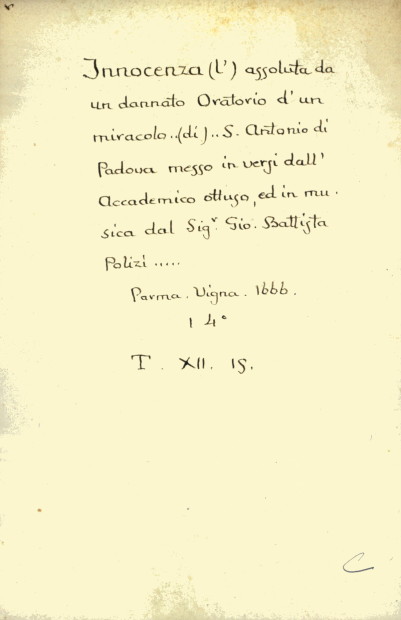 Innocenza (l') assoluta da
un dannato Oratorio d'un
miracolo..(di).. S. Antonio di
Padova messo in versi dall'
Accademico ottuso, ed in mu-
sica dal Sigr. Gio. Battista
Polizi .....
Parma. Vigna. 1666.
14°
T. XII. 15.
C